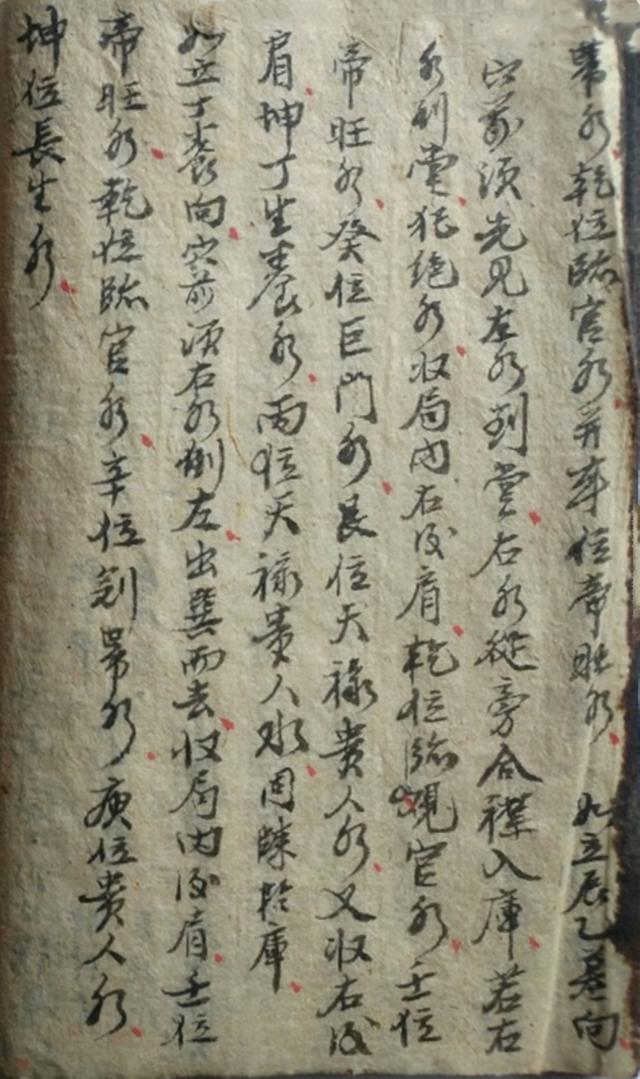 帶水乾位臨官水并辛位帝旺水 如立辰乙墓向
穴前須先見左水到堂右水從旁合襟入庫若右
水到堂犯絕水收局內右後肩乾位臨官水壬位
帝旺水癸位巨門水艮位天祿貴人水又收右後
肩坤丁生養水丙位天祿貴人水同歸於庫
如立丁養向穴前須右水倒左出巽而去收局內後肩壬位
帝旺水乾位臨官水辛位冠帶水庚位貴人水
坤位長生水